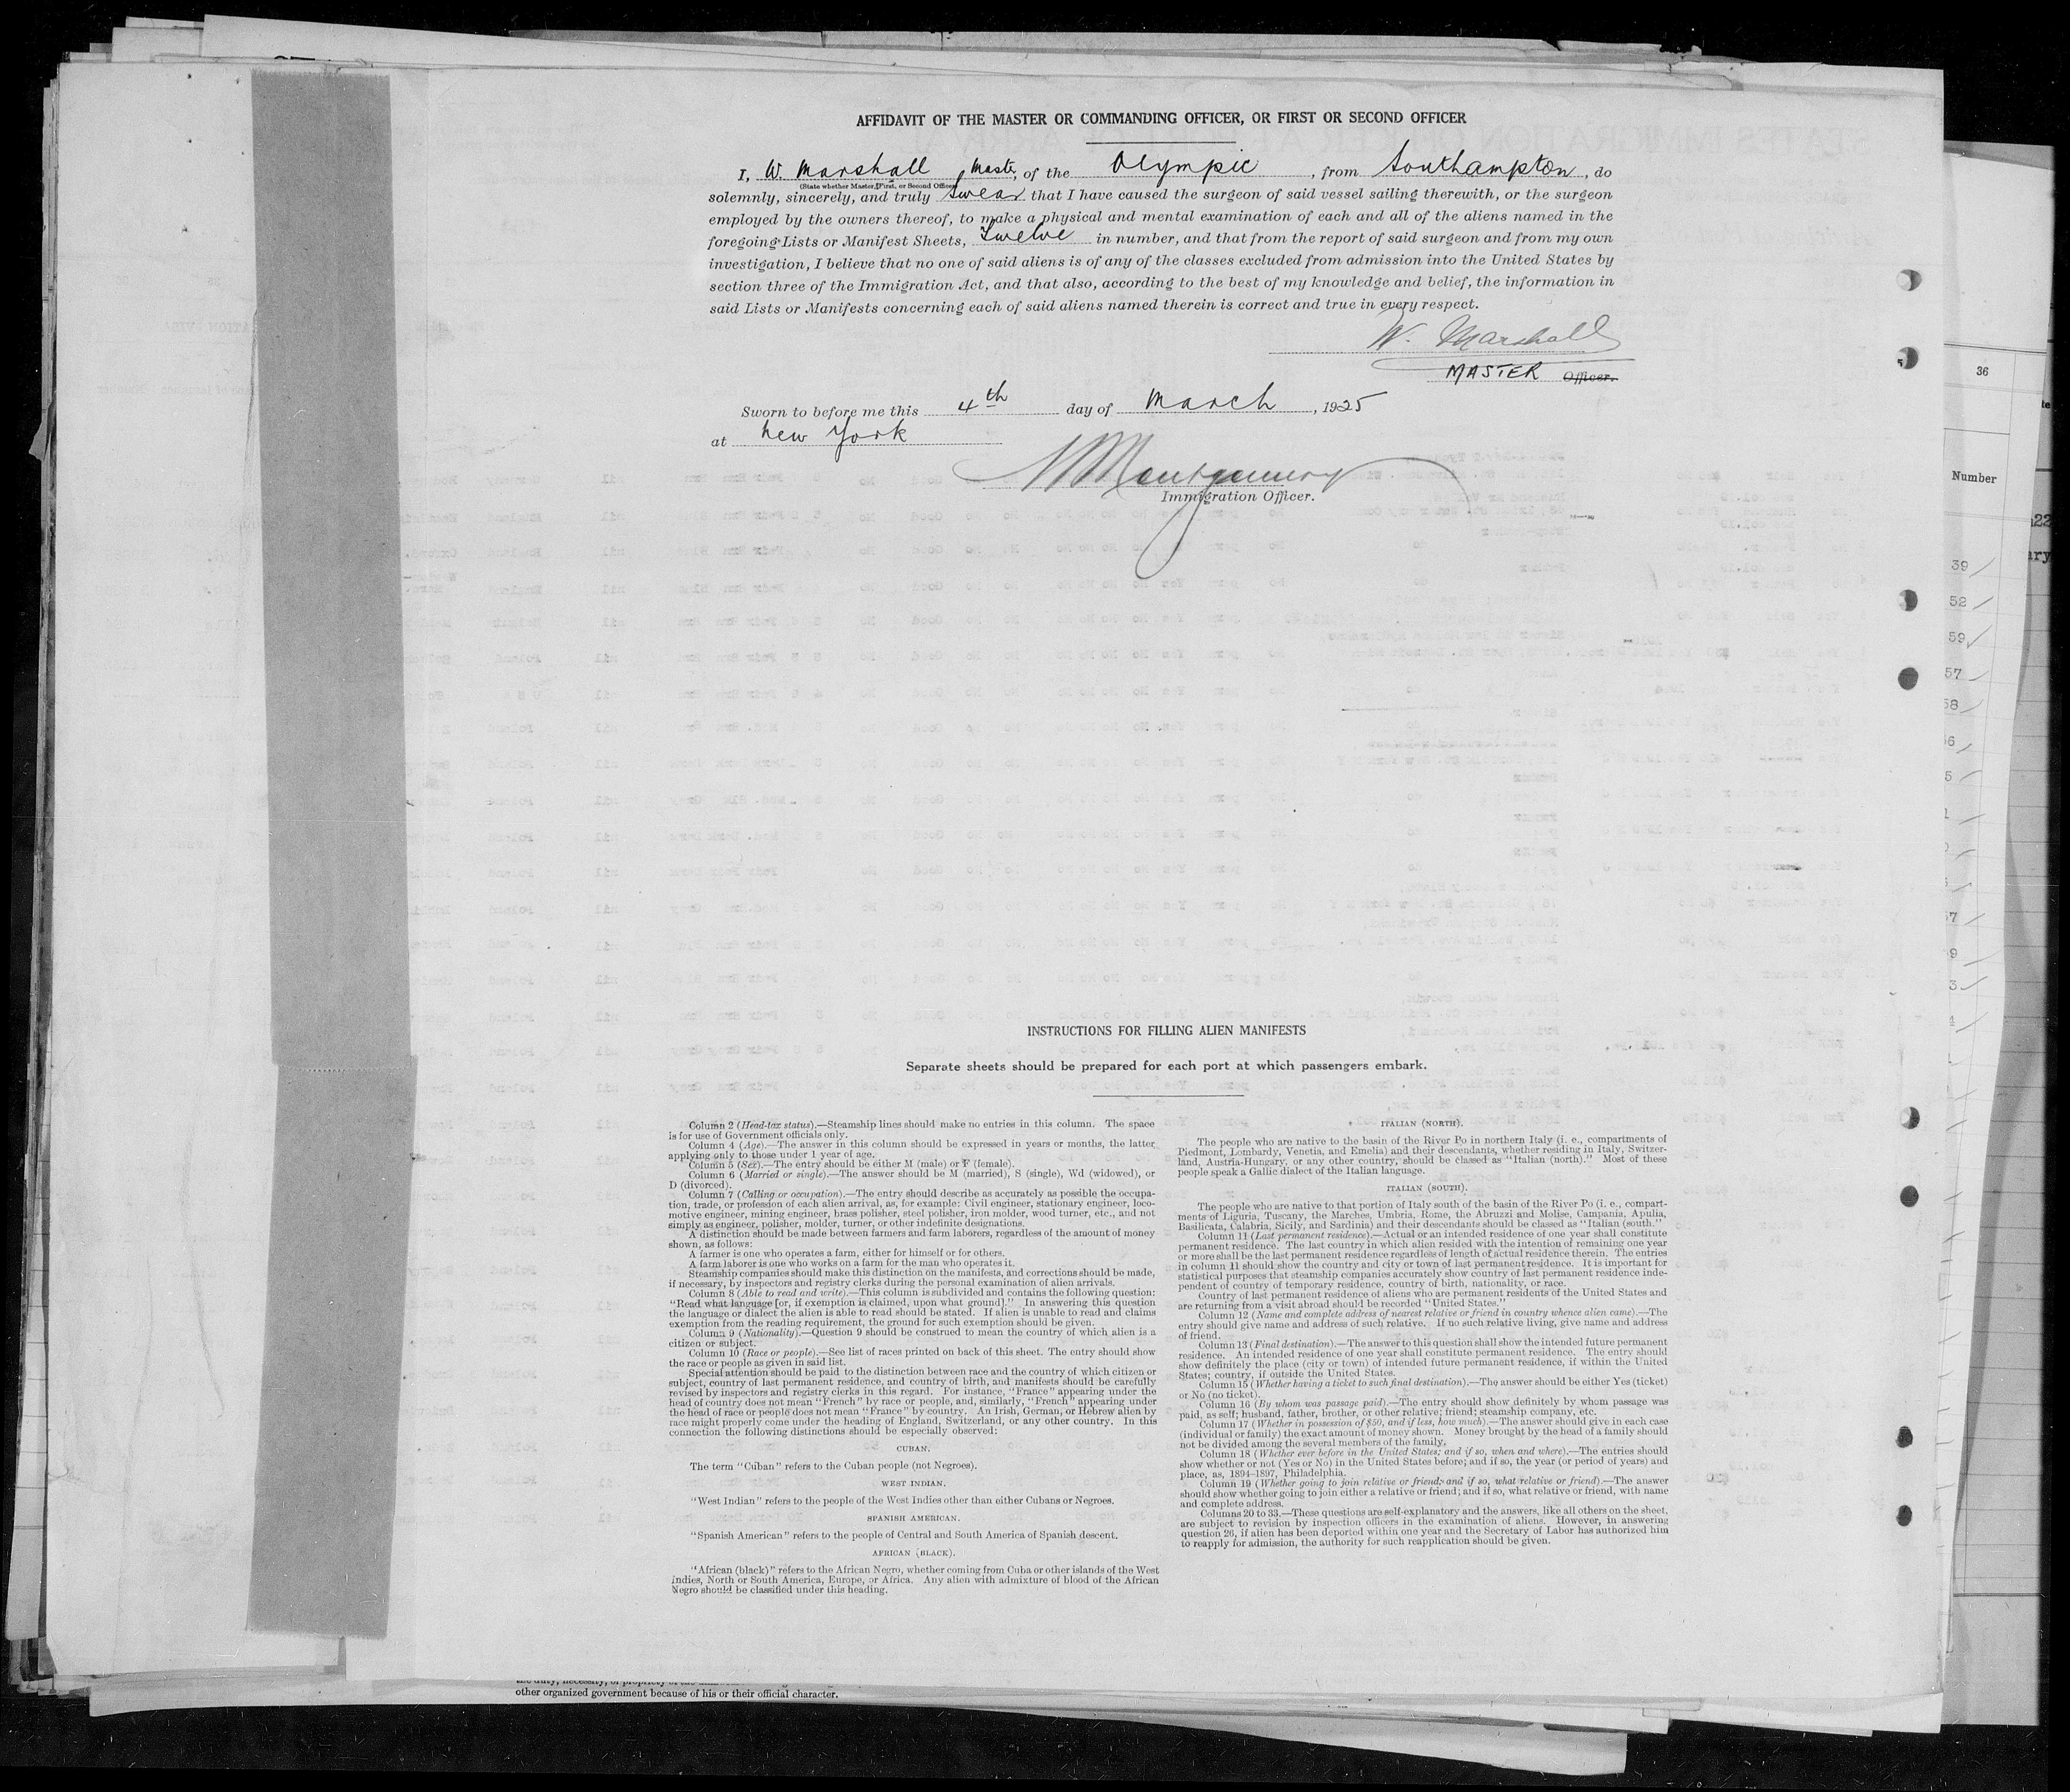 AFFIDAVIT OF THE MASTER OR COMMANDING OFFICER, OR FIRST OR SECOND OFFICER
I, W. Marshall Master, of the Olympic, from Southampton, do
(State whether Master, First, or Second Officer)
solemnly, sincerely, and truly swear that I have caused the surgeon of said vessel sailing therewith, or the surgeon
employed by the owners thereof, to make a physical and mental examination of each and all of the aliens named in the
foregoing Lists or Manifest Sheets, Twelve in number, and that from the report of said surgeon and from my own
investigation, I believe that no one of said aliens is of any of the classes excluded from admission into the United States by
section three of the Immigration Act, and that also, according to the best of my knowledge and belief, the information in
said Lists or Manifests concerning each of said aliens named therein is correct and true in every respect.
W. Marshall
MASTER Officer.
Sworn to before me this 4th day of March, 1925
at New York
Montgomery
Immigration Officer.
INSTRUCTIONS FOR FILLING ALIEN MANIFESTS
Separate sheets should be prepared for each port at which passengers embark.
Column 2 (Head-tax status).—Steamship lines should make no entries in this column. The space
is for use of Government officials only.
Column 4 (Age).—The answer in this column should be expressed in years or months, the latter
applying only to those under 1 year of age.
Column 5 (Sex).—The entry should be either M (male) or F (female).
Column 6 (Married or single).—The answer should be M (married), S (single), Wd (widowed), or
D (divorced).
Column 7 (Calling or occupation).—The entry should describe as accurately as possible the occupa-
tion, trade, or profession of each alien arrival, as, for example: Civil engineer, stationary engineer, loco-
motive engineer, mining engineer, brass polisher, steel polisher, iron molder, wood turner, etc., and not
simply as engineer, polisher, molder, turner, or other indefinite designations.
A distinction should be made between farmers and farm laborers, regardless of the amount of money
shown, as follows:
A farmer is one who operates a farm, either for himself or for others.
A farm laborer is one who works on a farm for the man who operates it.
Steamship companies should make this distinction on the manifests, and corrections should be made,
if necessary, by inspectors and registry clerks during the personal examination of alien arrivals.
Column 8 (Able to read and write).—This column is subdivided and contains the following question:
"Read what language [or, if exemption is claimed, upon what ground]." In answering this question
the language or dialect the alien is able to read should be stated. If alien is unable to read and claims
exemption from the reading requirement, the ground for such exemption should be given.
Column 9 (Nationality).—Question 9 should be construed to mean the country of which alien is a
citizen or subject.
Column 10 (Race or people).—See list of races printed on back of this sheet. The entry should show
the race or people as given in said list.
Special attention should be paid to the distinction between race and the country of which citizen or
subject, country of last permanent residence, and country of birth, and manifests should be carefully
revised by inspectors and registry clerks in this regard. For instance, "France" appearing under the
head of country does not mean "French" by race or people, and, similarly, "French" appearing under
the head of race or people does not mean "France" by country. An Irish, German, or Hebrew alien by
race might properly come under the heading of England, Switzerland, or any other country. In this
connection the following distinctions should be especially observed:
CUBAN.
The term "Cuban" refers to the Cuban people (not Negroes).
WEST INDIAN.
"West Indian" refers to the people of the West Indies other than either Cubans or Negroes.
SPANISH AMERICAN.
"Spanish American" refers to the people of Central and South America of Spanish descent.
AFRICAN (BLACK).
"African (black)" refers to the African Negro, whether coming from Cuba or other islands of the West
Indies, North or South America, Europe, or Africa. Any alien with admixture of blood of the African
Negro should be classified under this heading.
ITALIAN (NORTH).
The people who are native to the basin of the River Po in northern Italy (i. e., compartments of
Piedmont, Lombardy, Venetia, and Emelia) and their descendants, whether residing in Italy, Switzer-
land, Austria-Hungary, or any other country, should be classed as "Italian (north)." Most of these
people speak a Gallic dialect of the Italian language.
ITALIAN (SOUTH).
The people who are native to that portion of Italy south of the basin of the River Po (i. e., compart-
ments of Liguria, Tuscany, the Marches, Umbria, Rome, the Abruzzi and Molise, Campania, Apulia,
Basilicata, Calabria, Sicily, and Sardinia) and their descendants should be classed as "Italian (south."
Column 11 (Last permanent residence).—Actual or an intended residence of one year shall constitute
permanent residence. The last country in which alien resided with the intention of remaining one year
or more shall be the last permanent residence regardless of length of actual residence therein. The entries
in column 11 should show the country and city or town of last permanent residence. It is important for
statistical purposes that steamship companies accurately show country of last permanent residence inde-
pendent of country of temporary residence, country of birth, nationality, or race.
Country of last permanent residence of aliens who are permanent residents of the United States and
are returning from a visit abroad should be recorded "United States."
Column 12 (Name and complete address of nearest relative or friend in country whence alien came).—The
entry should give name and address of such relative. If no such relative living, give name and address
of friend.
Column 13 (Final destination).—The answer to this question shall show the intended future permanent
residence. An intended residence of one year shall constitute permanent residence. The entry should
show definitely the place (city or town) of intended future permanent residence, if within the United
States; country, if outside the United States.
Column 15 (Whether having a ticket to such final destination).—The answer should be either Yes (ticket)
or No (no ticket).
Column 16 (By whom was passage paid).—The entry should show definitely by whom passage was
paid, as self; husband, father, brother, or other relative; friend; steamship company, etc.
Column 17 (Whether in possession of $50, and if less, how much).—The answer should give in each case
(individual or family) the exact amount of money shown. Money brought by the head of a family should
not be divided among the several members of the family.
Column 18 (Whether ever before in the United States; and if so, when and where).—The entries should
show whether or not (Yes or No) in the United States before; and if so, the year (or period of years) and
place, as, 1894-1897, Philadelphia.
Column 19 (Whether going to join relative or friend; and if so, what relative or friend).—The answer
should show whether going to join either a relative or friend; and if so, what relative or friend, with name
and complete address.
Columns 20 to 33.—These questions are self-explanatory and the answers, like all others on the sheet,
are subject to revision by inspection officers in the examination of aliens. However, in answering
question 26, if alien has been deported within one year and the Secretary of Labor has authorized him
to reapply for admission, the authority for such reapplication should be given.
other organized government because of his or their official character.
36
Number
39
52
59
57